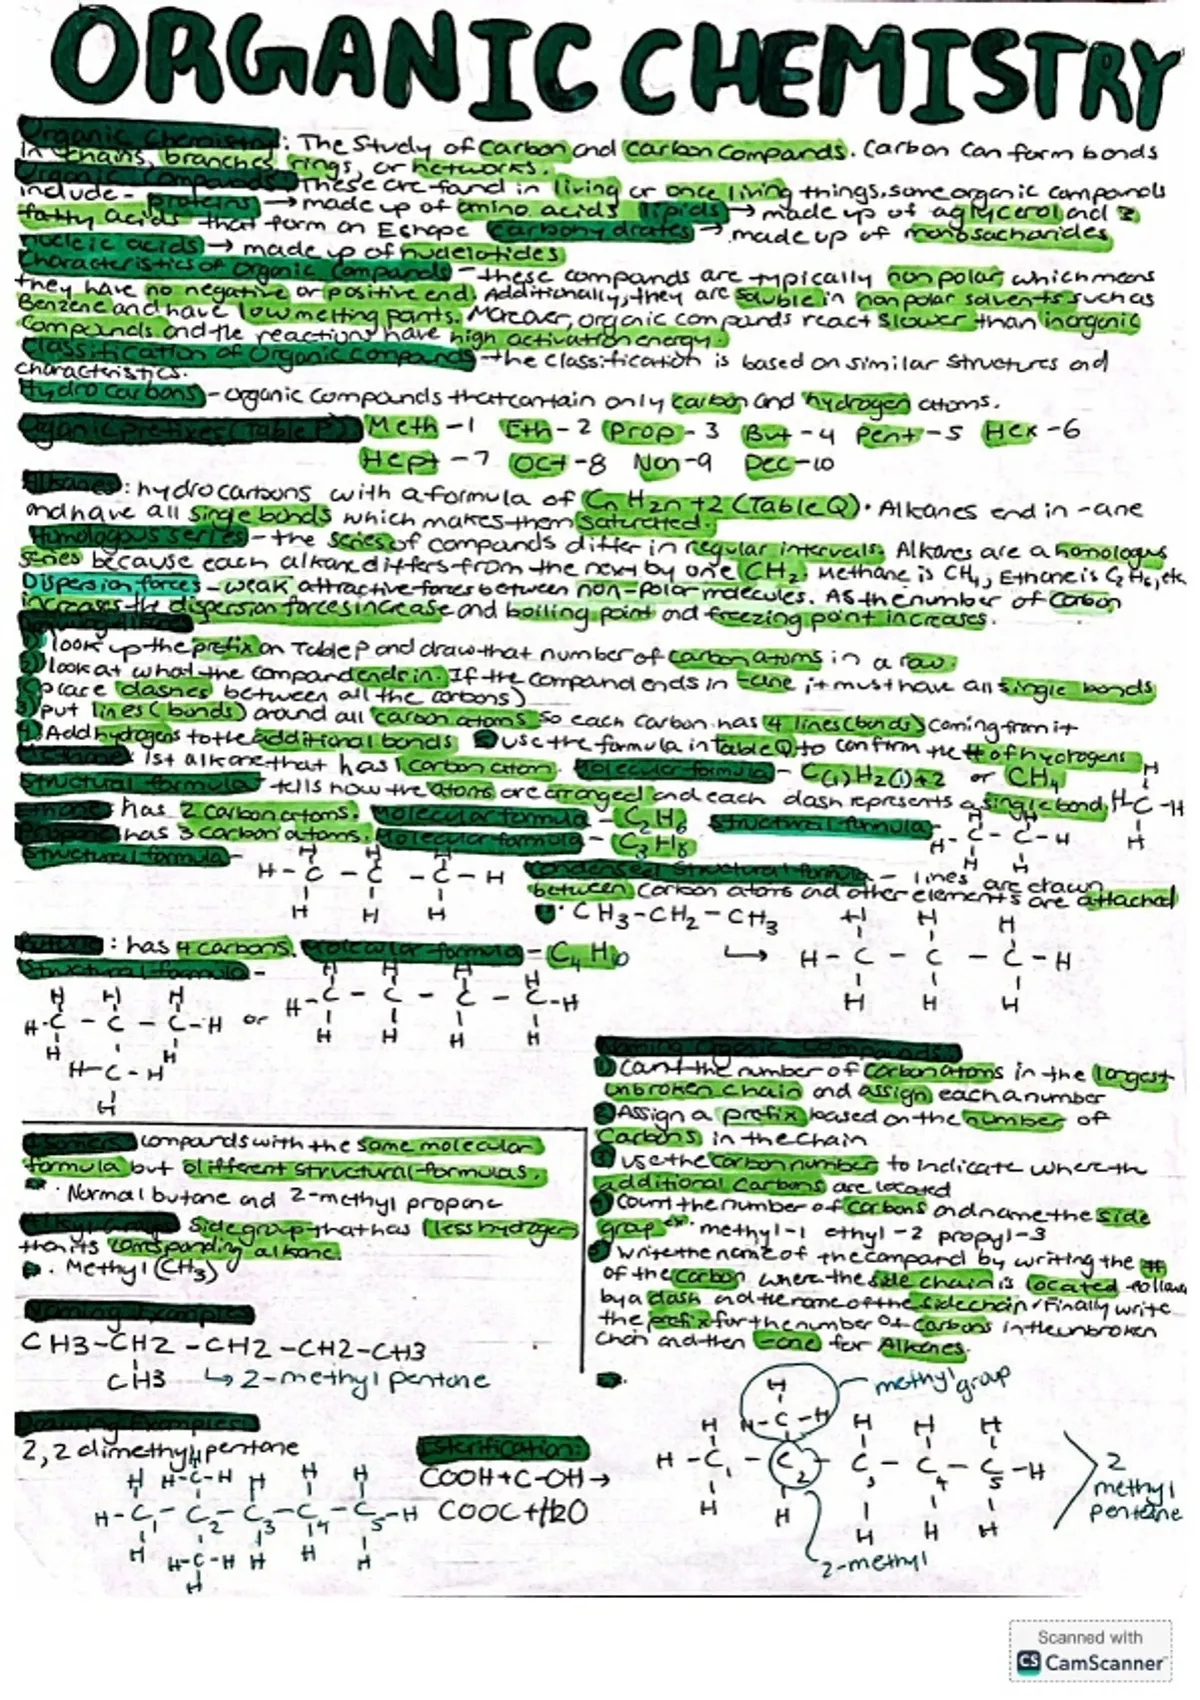 ORGANIC CHEMISTRY
Organic Chemistry: The Study of carbon and carbon compounds. Carbon can form bonds
in chains, branches, rings, or networks.
Organic Compounds These are found in living or once living things. some organic compounds
include - proteins → made up of amino acids lipids → made up of a glycerol and 3
fatty acids that form an E shape Carbohydrates → made up of monosacharides
nucleic acids → made up of nucleiotides
Characteristics of Organic Compounds - these compounds are typically non polar which means
they have no negative or positive end. Additionally, they are soluble in nonpolar solvents such as
Benzene and have low melting points. Moreover, organic compounds react slower than inorganic
compounds and the reactions have high activation energy.
Classification of Organic Compounds - the classification is based on similar structures and
characteristics.
Hydrocarbons - organic compounds that contain only carbon and hydrogen atoms.
Organic prefixes (Table P) Meth - 1 Eth - 2 Prop - 3 But - 4 Pent - 5 Hex - 6
Hept - 7 Oct - 8 Non - 9 Dec - 10
Alkanes: hydrocarbons with a formula of Cn H2n+2 (Table Q). Alkanes end in -ane
and have all single bonds which makes them saturated.
Homologous series - the series of compounds differ in regular intervals. Alkanes are a homologus
series because each alkane differs from the next by one CH2. Methane is CH4, Ethane is C2H6, etc
Dispersion forces - weak attractive forces between non-polar molecules. As the number of carbon
increases the dispersion forces increase and boiling point and freezing point increases.
1) look up the prefix on Table P and draw that number of carbon atoms in a row.
2) look at what the compound ends in. If the compound ends in -ane it must have all single bonds
(place dashes between all the carbons)
3) put lines (bonds) around all carbon atoms so each carbon has 4 lines (bonds) coming from it
4) Add hydrogens to the additional bonds use the formula in Table Q to confirm the # of hydrogens
Methane: 1st alkane that has 1 carbon atom. Molecular formula - C(1)H2(1)+2 or CH4
H
Structural formula - tells how the atoms are arranged and each dash represents a single bond H-C-H
H
Ethane: has 2 carbon atoms. Molecular formula - C2H6 Structural formula -
H H
H-C-C-H
H H
Propane has 3 carbon atoms. Molecular formula - C3H8
Structural formula -
H H H
H-C-C-C-H
H H H
Condensed Structural formula - lines are drawn
between Carbon atoms and other elements are attached
CH3-CH2-CH3
↳ H-C-C-C-H
H H H
H H H
Butane: has 4 carbons. Molecular formula - C4H10
Structural formula -
H H H
H-C-C-C-H or
H H
H-C-H
H
H H H H
H-C-C-C-C-H
H H H H
Naming Organic Compounds
1) Count the number of carbon atoms in the longest
unbroken chain and assign each a number
2) Assign a prefix based on the number of
Carbons in the chain
3) use the carbon number to indicate where the
additional Carbons are located
4) Count the number of carbons and name the side
group ex. methyl-1 ethyl-2 propyl-3
5) write the name of the compound by writing the #
of the carbon where the side chain is located follow
by a dash and the name of the sidechain. Finally write
the prefix for the number of carbons in the unbroken
chain and then -ane for Alkanes.
Isomers compounds with the same molecular
formula but different structural formulas.
Normal butane and 2-methyl propane
Alkyl Groups Side group that has 1 less hydrogen
than its corresponding alkane
Methyl (CH3)
Naming Examples
CH3-CH2-CH2-CH2-CH3
CH3 ↳ 2-methyl pentane
Drawing Examples
2,2 dimethyl pentane
H H-C-H H H H
H-C1-C2-C3-C4-C5-H
H H-C-H H H H
H
Esterification:
COOH + C-OH →
COOC + H2O
H
H H-C-H H H H
methyl group
H-C1-C2-C3-C4-C5-H
H H H H H
2-methyl
2
methyl
pentane
Scanned with
CS CamScanner